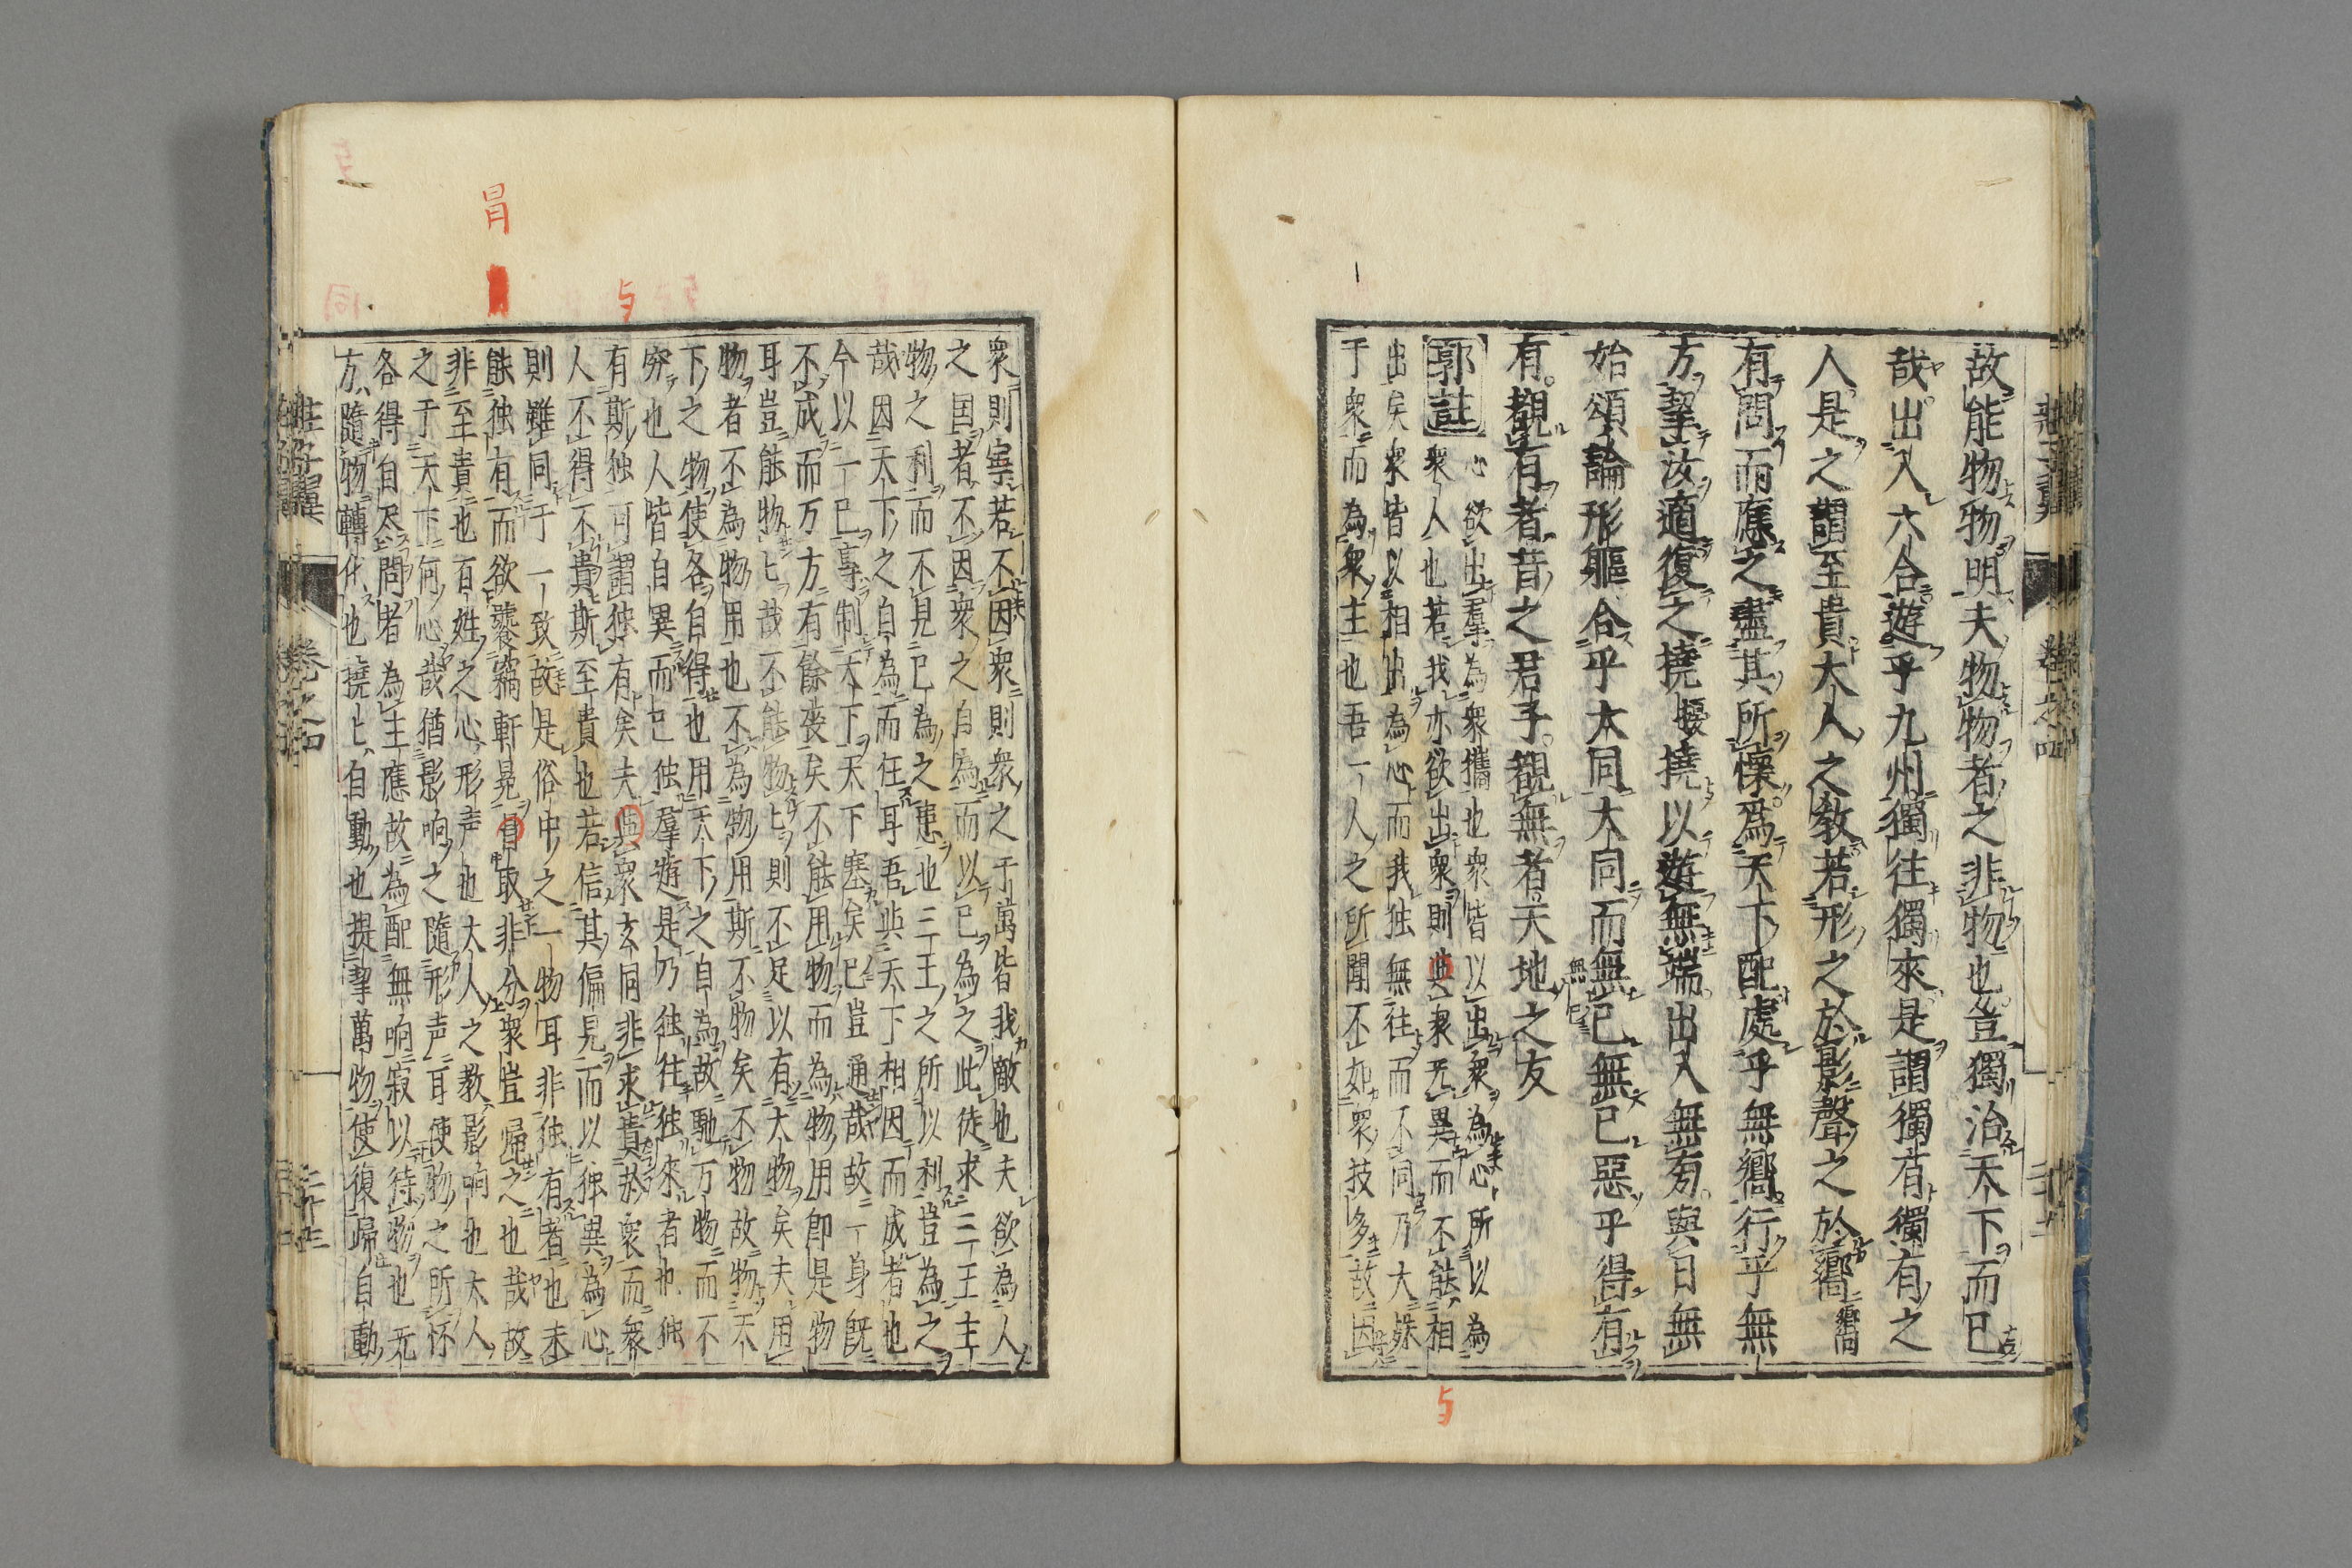 故能物物明夫物物者之非物也豈獨治天下而已
哉出入六合遊乎九州獨往獨來是謂獨有獨有之
人是之謂至貴大人之教若形之於影聲之於嚮嚮
有問而應之盡其所懷爲天下配處乎無嚮行乎無
方挈汝適復之撓撓以遊無端出入無旁與日無
始頌論形軀合乎大同大同而無已無已惡乎得有
有覩有者昔之君子覩無者天地之友
郭註
心欲出羣為衆攜也衆皆以出衆為心所以為
衆人也若我亦欲出衆則與衆无異而不能相
出矣衆皆以相出為心而我独無往而不同乃大殊
于衆而為衆主也吾一人之所聞不如衆技多故因
衆則寧若不因衆則衆之千萬皆我敵也夫欲為人
之国者不因衆之自為而以已為之此徒求三王主
物之利而不見已為之患也三王之所以利豈為之
哉因天下之自為而任耳吾與天下相因而成者也
今以一已専制天下天下塞矣已豈通哉故一身既
不成而万方有餘丧矣不能用物而為物用即是物
耳豈能物匕哉不能物匕則不足以有大物矣夫用
物者不為物用也不為物用斯不物矣不物故物天
下之物使各自得也用天下之自為故馳万物而不
穷也人皆自異而已独羣遊是乃独往独来者也独
有斯独可謂独有矣夫與衆玄同非求貴於衆而衆
人不得不貴斯至貴也若信其偏見而以独異為心
則雖同于一致故是俗中之一物耳非独有者也未
能独有而欲饕竊軒冕冒取非分衆豈歸之也哉故
非至貴也百姓之心形声也大人之教影响也大人
之于天下何心哉猶影响之隨形声耳使物之所怀
各得自尽問者為主應故為配無响寂以待物也无
方隨物轉化也撓匕自動也提挈萬物使復歸自動
莊子翼
卷之四
二十三
冐
与
与